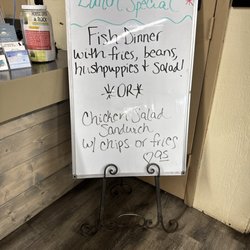 Lunch Special
Fish Dinner
with fries, beans,
hushpuppies & Salad
*OR*
Chicken Salad
Sandwich
w/ chips or fries